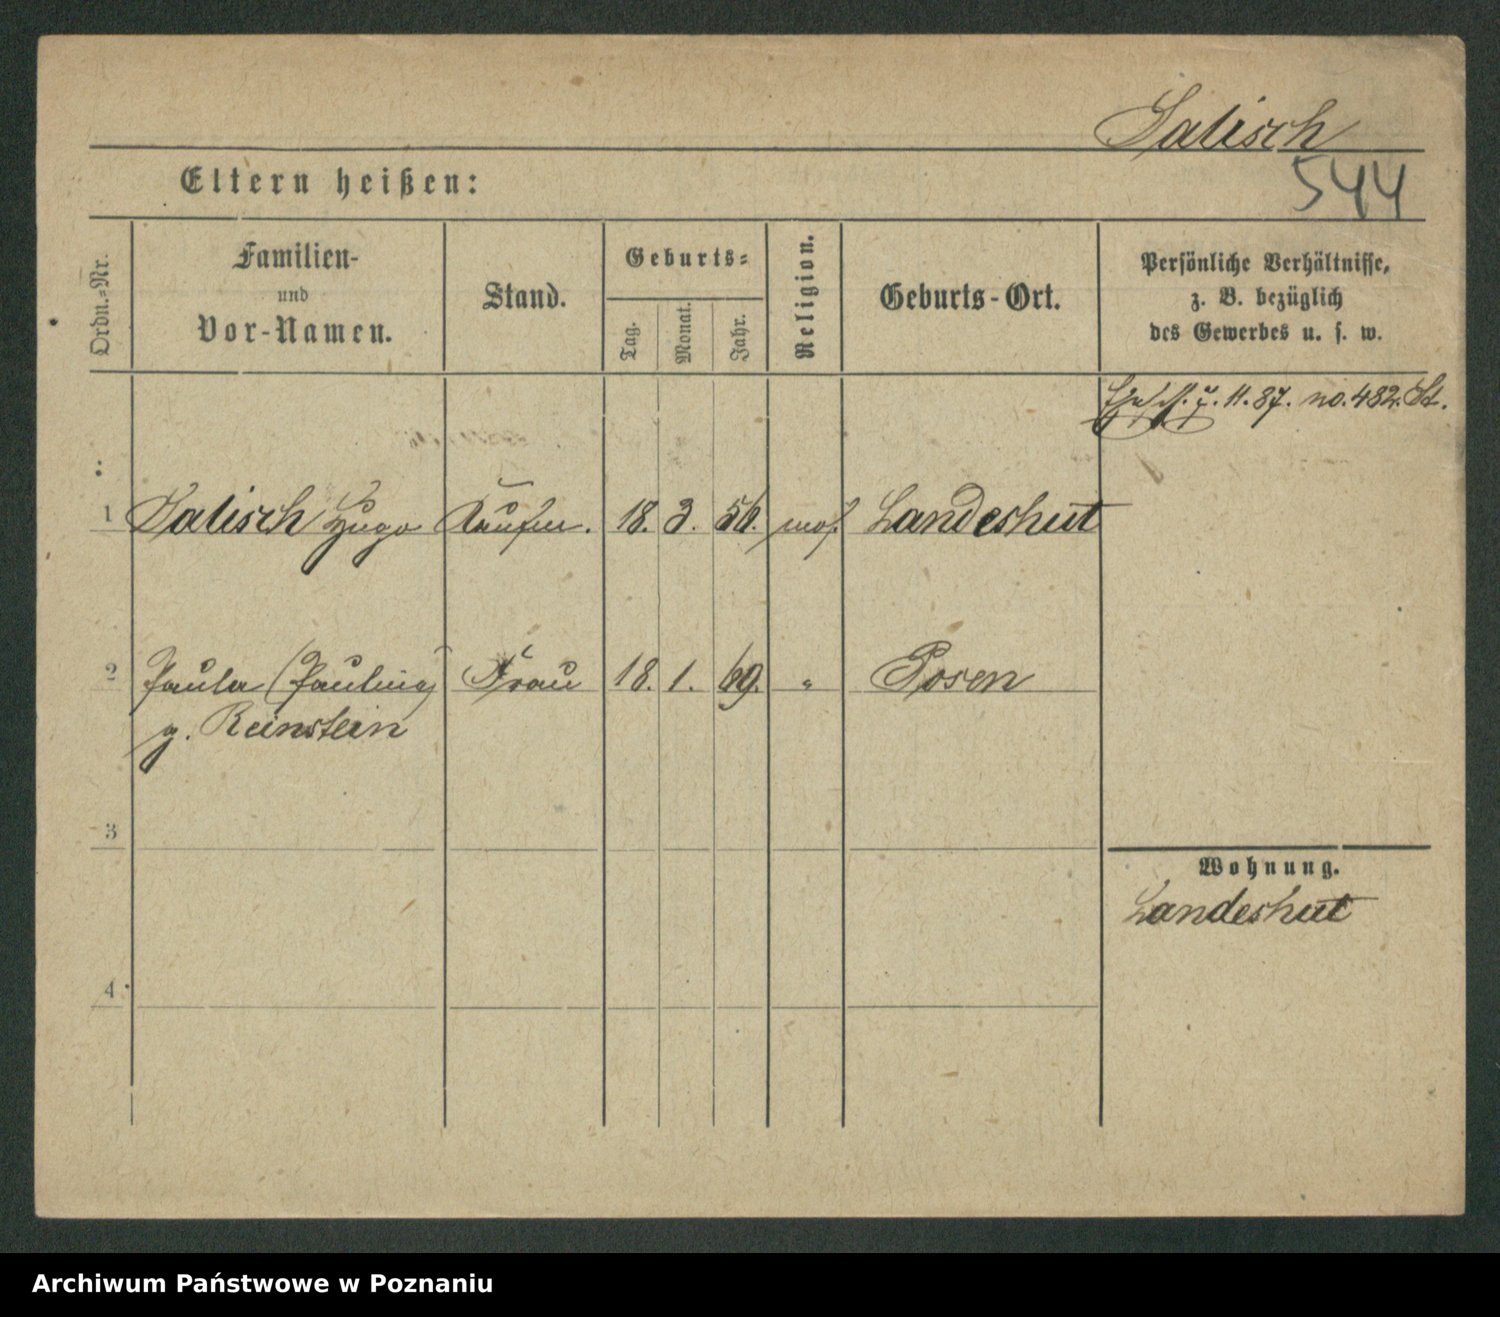 Salisch
544
Eltern heißen:
Ordn.-Nr.
Familien-
und
Vor-Namen.
Stand.
Geburts-
Tag.
Monat.
Jahr.
Religion.
Geburts-Ort.
Persönliche Verhältnisse,
z. B. bezüglich
des Gewerbes u. s. w.
11. 87. no. 482. St.
1 Salisch Hugo Kaufm. 18. 3. 56. mos. Landeshut
2 Paula (Pauline) Frau 18. 1. 69. " Posen
g. Reinstein
3
Wohnung.
Landeshut
4
Archiwum Państwowe w Poznaniu